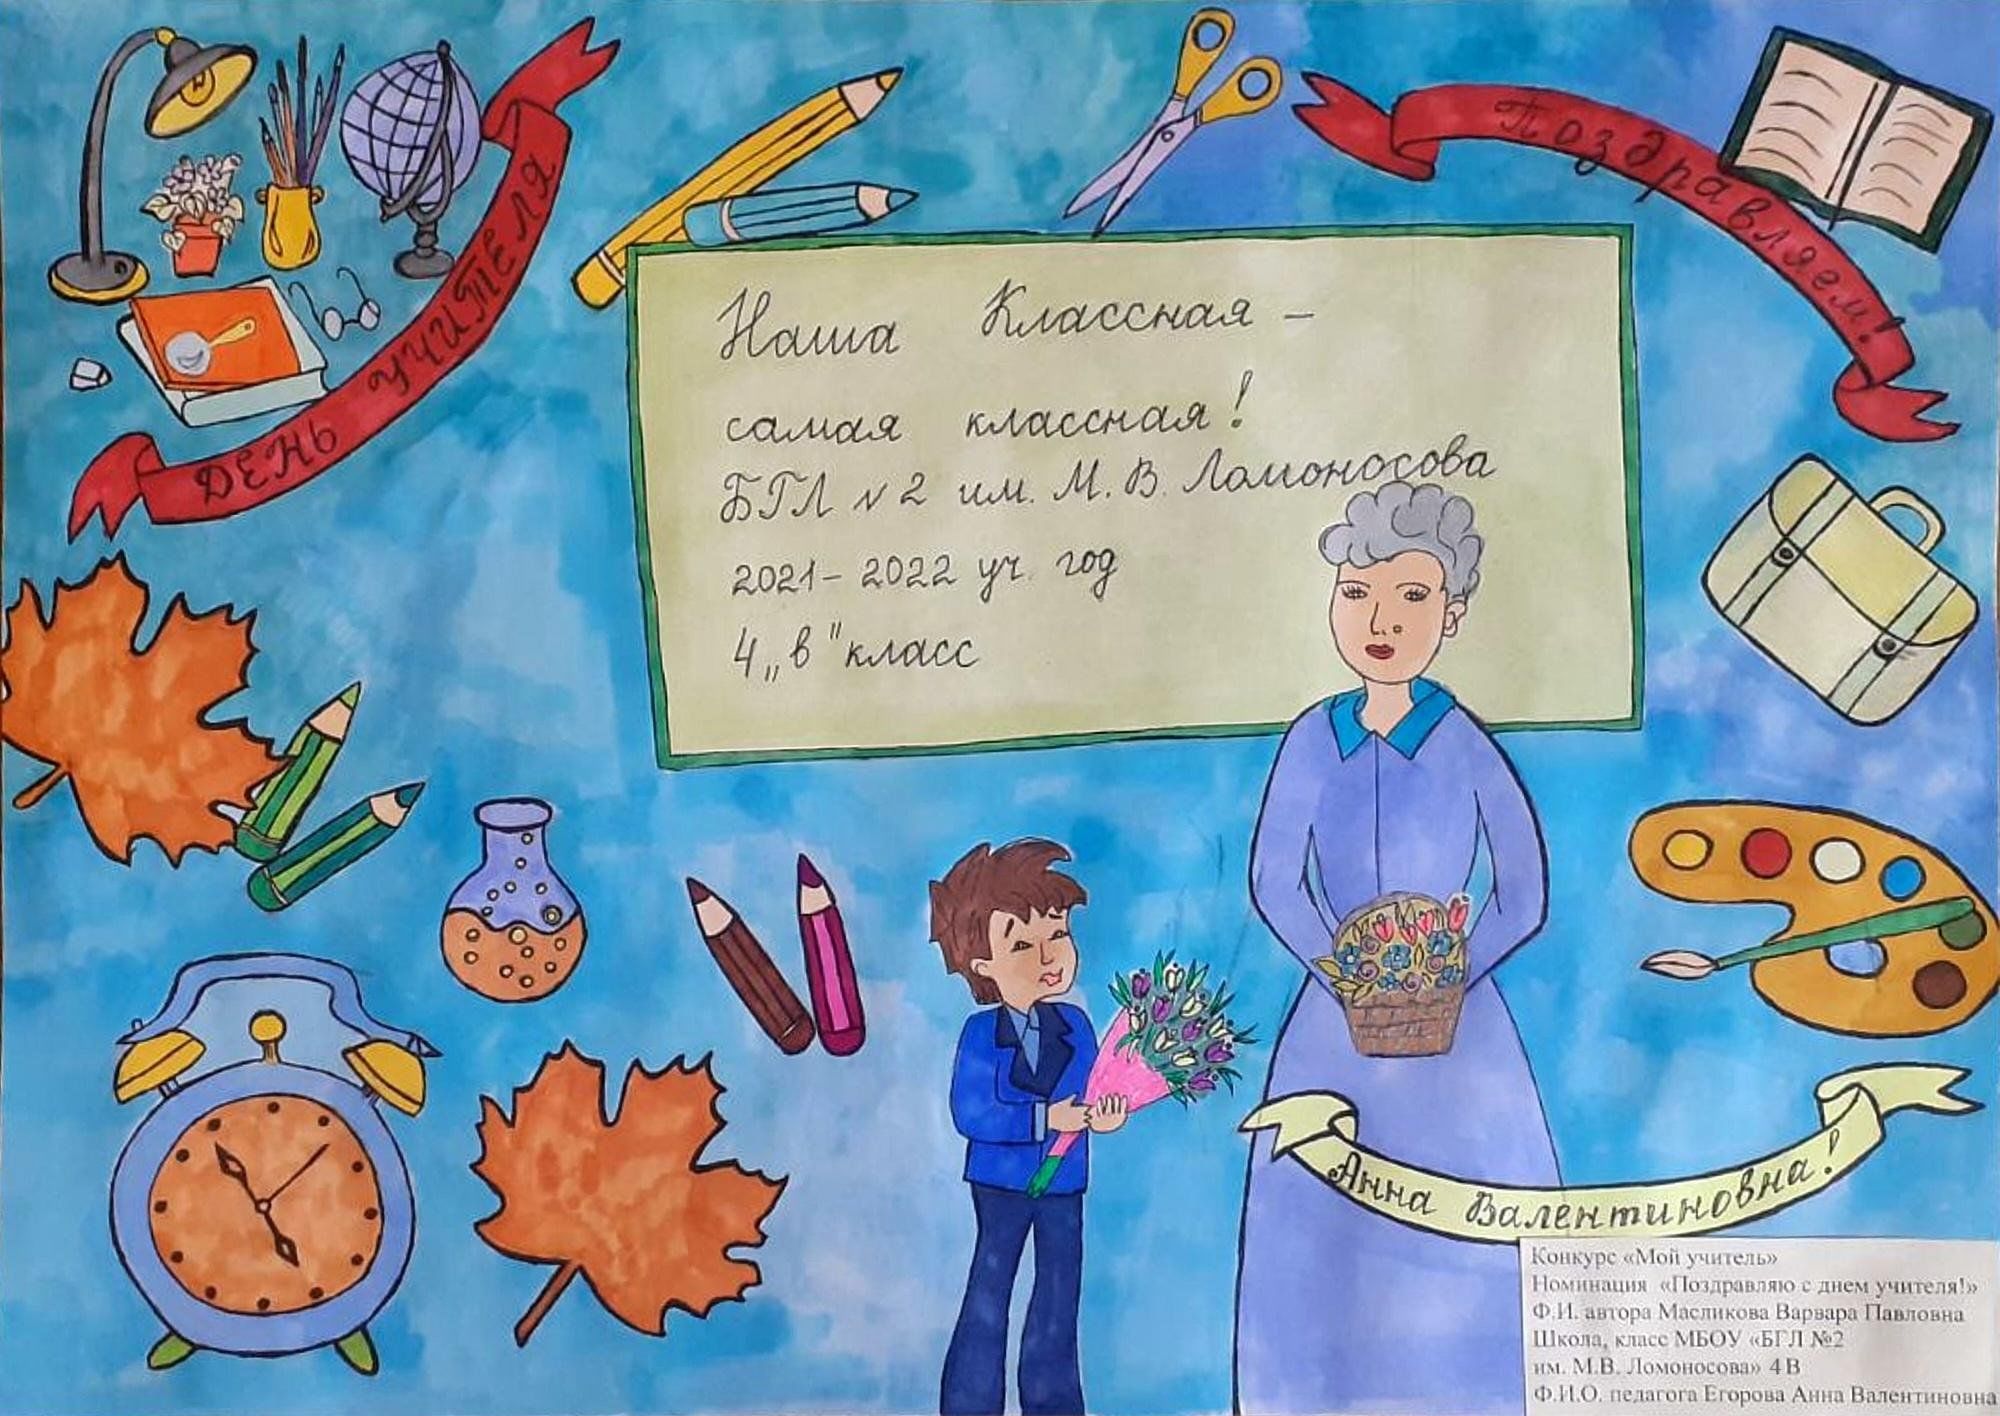 ДЕНЬ УЧИТЕЛЯ
Поздравляем!
Наша Классная –
самая классная!
БГЛ №2 им. М. В. Ломоносова
2021 – 2022 уч. год
4 „в" класс
Анна Валентиновна!
Конкурс «Мой учитель»
Номинация «Поздравляю с днем учителя!»
Ф.И. автора Масликова Варвара Павловна
Школа, класс МБОУ «БГЛ №2
им. М.В. Ломоносова» 4 В
Ф.И.О. педагога Егорова Анна Валентиновна